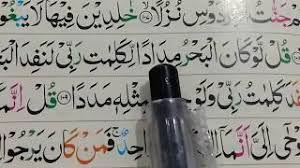 جَنّٰتُ دَوْسِ نُزُلًا ۙ﴿۱۰۷﴾ خٰلِدِيْنَ فِيْهَا لَا يَبْغُوْ
قُلْ لَّوْ كَانَ الْبَحْرُ مِدَادًا لِّكَلِمٰتِ رَبِّيْ لَنَفِدَ الْبَحْ
كَلِمٰتُ رَبِّيْ وَلَوْ مِثْلِهٖ مَدَدًا ﴿۱۰۹﴾ قُلْ اِنَّمَ
اِلَيَّ اَنَّمَاۤ حِدٌ ۚ فَمَنْ كَانَ يَرْجُوْا